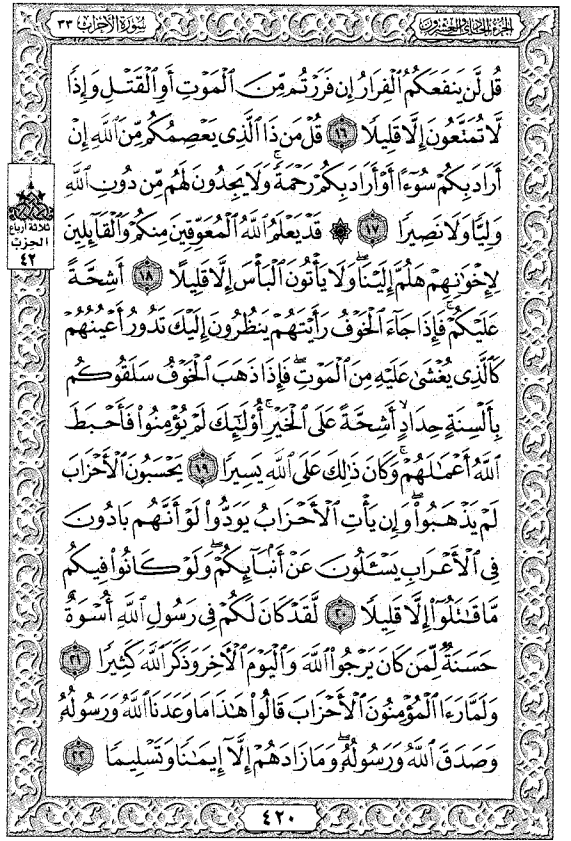 الجزء الحادي والعشرون
سورة الأحزاب ٣٣
قُل لَّن يَنفَعَكُمُ ٱلْفِرَارُ إِن فَرَرْتُم مِّنَ ٱلْمَوْتِ أَوِ ٱلْقَتْلِ وَإِذًا
لَّا تُمَتَّعُونَ إِلَّا قَلِيلًا ١٦ قُلْ مَن ذَا ٱلَّذِى يَعْصِمُكُم مِّنَ ٱللَّهِ إِنْ
أَرَادَ بِكُمْ سُوٓءًا أَوْ أَرَادَ بِكُمْ رَحْمَةً ۚ وَلَا يَجِدُونَ لَهُم مِّن دُونِ ٱللَّهِ
وَلِيًّا وَلَا نَصِيرًا ١٧ ۞ قَدْ يَعْلَمُ ٱللَّهُ ٱلْمُعَوِّقِينَ مِنكُمْ وَٱلْقَآئِلِينَ
ثلاثة أرباع
الحزب
٤٢
لِإِخْوَٰنِهِمْ هَلُمَّ إِلَيْنَا ۖ وَلَا يَأْتُونَ ٱلْبَأْسَ إِلَّا قَلِيلًا ١٨ أَشِحَّةً
عَلَيْكُمْ ۖ فَإِذَا جَآءَ ٱلْخَوْفُ رَأَيْتَهُمْ يَنظُرُونَ إِلَيْكَ تَدُورُ أَعْيُنُهُمْ
كَٱلَّذِى يُغْشَىٰ عَلَيْهِ مِنَ ٱلْمَوْتِ ۖ فَإِذَا ذَهَبَ ٱلْخَوْفُ سَلَقُوكُم
بِأَلْسِنَةٍ حِدَادٍ أَشِحَّةً عَلَى ٱلْخَيْرِ ۚ أُو۟لَٰٓئِكَ لَمْ يُؤْمِنُوا۟ فَأَحْبَطَ
ٱللَّهُ أَعْمَٰلَهُمْ ۚ وَكَانَ ذَٰلِكَ عَلَى ٱللَّهِ يَسِيرًا ١٩ يَحْسَبُونَ ٱلْأَحْزَابَ
لَمْ يَذْهَبُوا۟ ۖ وَإِن يَأْتِ ٱلْأَحْزَابُ يَوَدُّوا۟ لَوْ أَنَّهُم بَادُونَ
فِى ٱلْأَعْرَابِ يَسْـَٔلُونَ عَنْ أَنۢبَآئِكُمْ ۖ وَلَوْ كَانُوا۟ فِيكُم
مَّا قَٰتَلُوٓا۟ إِلَّا قَلِيلًا ٢٠ لَّقَدْ كَانَ لَكُمْ فِى رَسُولِ ٱللَّهِ أُسْوَةٌ
حَسَنَةٌ لِّمَن كَانَ يَرْجُوا۟ ٱللَّهَ وَٱلْيَوْمَ ٱلْـَٔاخِرَ وَذَكَرَ ٱللَّهَ كَثِيرًا ٢١
وَلَمَّا رَءَا ٱلْمُؤْمِنُونَ ٱلْأَحْزَابَ قَالُوا۟ هَٰذَا مَا وَعَدَنَا ٱللَّهُ وَرَسُولُهُۥ
وَصَدَقَ ٱللَّهُ وَرَسُولُهُۥ ۚ وَمَا زَادَهُمْ إِلَّآ إِيمَٰنًا وَتَسْلِيمًا ٢٢
٤٢٠